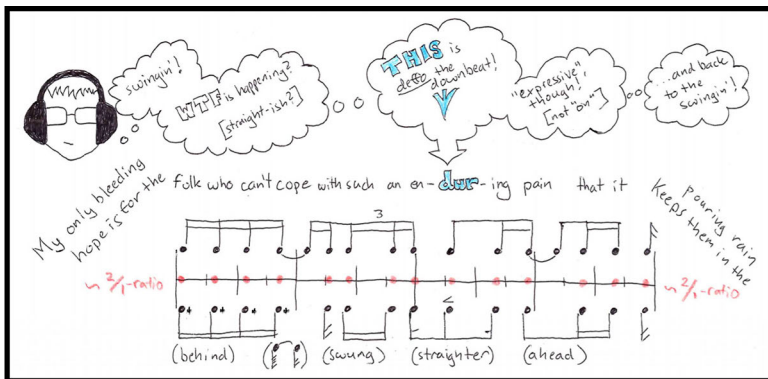 swingin'!
WTF is happening?
[straight-ish?]
THIS is
deffo the
downbeat!
"expressive"
though!,
[not "on"]
...and back
to the
swingin'!
My only bleeding
hope is for the
folk who can't cope with such an en-dur-ing pain that it
Keeps them in the
pouring rain
3
~ 2/1-ratio
~ 2/1-ratio
(behind)
(swung)
(straighter)
(ahead)